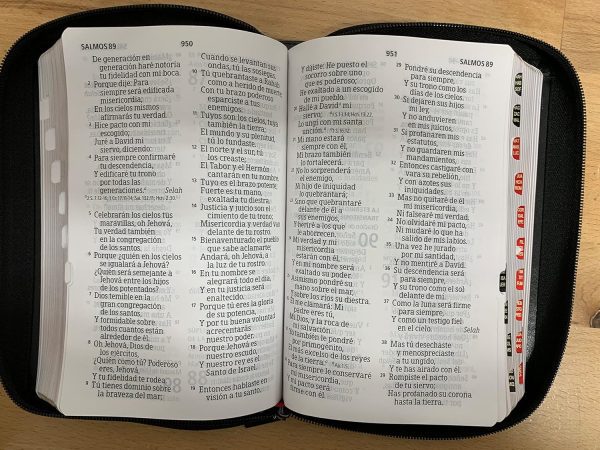 SALMOS 89
950
De generación en
generación haré notoria
tu fidelidad con mi boca.
2 Porque dije: Para
siempre será edificada
misericordia;
En los cielos mismos
afirmarás tu verdad.
3 Hice pacto con mi
escogido;
Juré a David mi
siervo, diciendo:
4 Para siempre confirmaré
tu descendencia,
Y edificaré tu trono
por todas las
generaciones. Selah
5 Celebrarán los cielos tus
maravillas, oh Jehová,
Tu verdad también
en la congregación
de los santos.
6 Porque ¿quién en los cielos
se igualará a Jehová?
¿Quién será semejante a
Jehová entre los hijos
de los potentados?
7 Dios temible en la
gran congregación
de los santos,
Y formidable sobre
todos cuantos están
alrededor de él.
8 Oh Jehová, Dios de
los ejércitos,
¿Quién como tú? Poderoso
eres, Jehová,
Y tu fidelidad te rodea.
9 Tú tienes dominio sobre
la braveza del mar;
Cuando se levantan sus
ondas, tú las sosiegas.
10 Tú quebrantaste a Rahab
como a herido de muerte;
Con tu brazo poderoso
esparciste a tus
enemigos.
11 Tuyos son los cielos, tuya
también la tierra;
El mundo y su plenitud,
tú lo fundaste.
12 El norte y el sur, tú
los creaste;
El Tabor y el Hermón
cantarán en tu nombre.
13 Tuyo es el brazo potente;
Fuerte es tu mano,
exaltada tu diestra.
14 Justicia y juicio son el
cimiento de tu trono;
Misericordia y verdad van
delante de tu rostro.
15 Bienaventurado el pueblo
que sabe aclamarte;
Andará, oh Jehová, a
la luz de tu rostro.
16 En tu nombre se
alegrará todo el día,
Y en tu justicia será
enaltecido.
17 Porque tú eres la gloria
de su potencia,
Y por tu buena voluntad
acrecentarás
nuestro poder.
18 Porque Jehová es
nuestro escudo,
Y nuestro rey es el
Santo de Israel.
19 Entonces hablaste en
visión a tu santo,
951
SALMOS 89
Y dijiste: He puesto el
socorro sobre uno
que es poderoso;
He exaltado a un escogido
de mi pueblo.
Hallé a David mi
siervo;
Lo ungí con mi santa
unción.
Mi mano estará
siempre con él,
Mi brazo también
lo fortalecerá.
No lo sorprenderá
el enemigo,
Ni hijo de iniquidad
lo quebrantará;
Sino que quebrantaré
delante de él a
sus enemigos,
Y heriré a los que
le aborrecen.
Mi verdad y mi
misericordia
estarán con él,
Y en mi nombre será
exaltado su poder.
Asimismo pondré su
mano sobre el mar,
Y sobre los ríos su diestra.
Él me clamará: Mi
padre eres tú,
Mi Dios, y la roca de
mi salvación.
Yo también le pondré
por primogénito,
El más excelso de los reyes
de la tierra.
Para siempre le conservaré
mi misericordia,
Y mi pacto será
firme con él.
29 Pondré su descendencia
para siempre,
Y su trono como los
días de los cielos.
30 Si dejaren sus hijos
mi ley,
Y no anduvieren
en mis juicios,
31 Si profanaren mis
estatutos,
Y no guardaren mis
mandamientos,
32 Entonces castigaré con
vara su rebelión,
Y con azotes sus
iniquidades.
33 Mas no quitaré de él
mi misericordia,
Ni falsearé mi verdad.
34 No olvidaré mi pacto,
Ni mudaré lo que ha
salido de mis labios.
35 Una vez he jurado
por mi santidad,
Y no mentiré a David.
36 Su descendencia será
para siempre,
Y su trono como el sol
delante de mí.
37 Como la luna será firme
para siempre,
Y como un testigo fiel
en el cielo. Selah
38 Mas tú desechaste
y menospreciaste
a tu ungido,
Y te has airado con él.
39 Rompiste el pacto
de tu siervo;
Has profanado su corona
hasta la tierra.